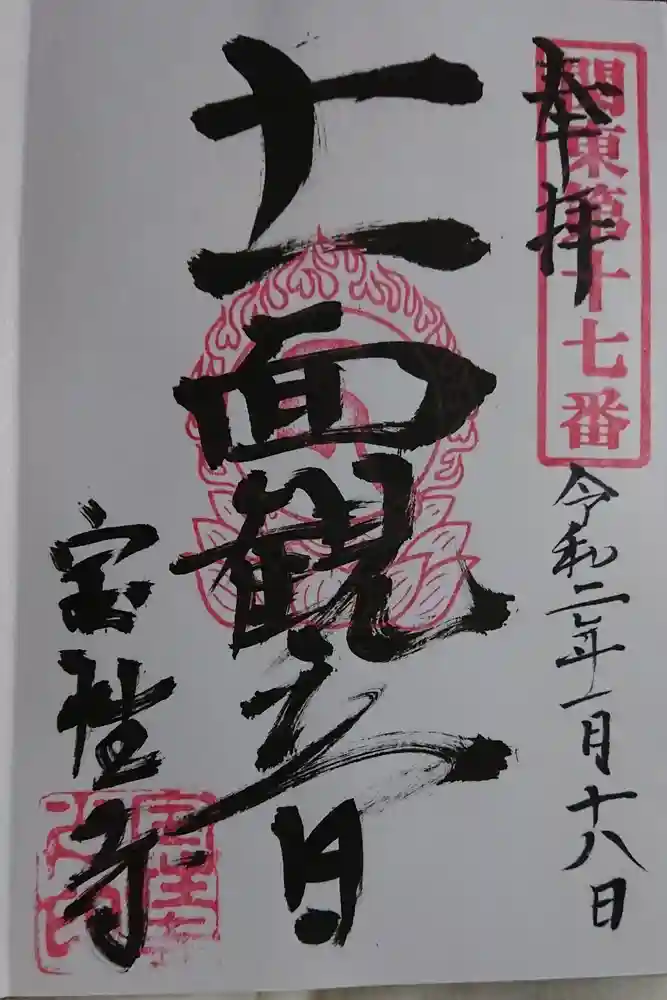 奉拝
関東第十七番
令和二年一月十八日
十一面観世音
宝性寺